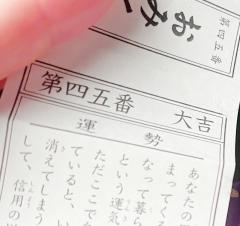 第四五番
おみ
第四五番 大吉
運勢
あなたの
まってくる
なって暮ら
という運気
ただここで
ていると、
消えてしまう
して、信用の